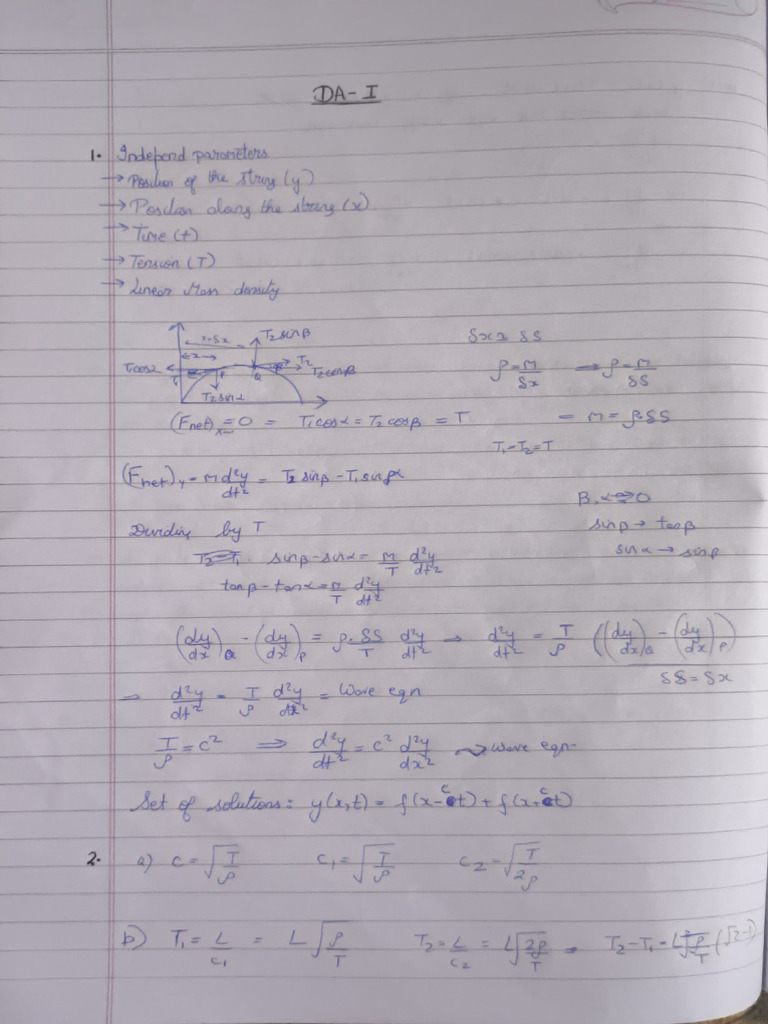 DA-I
1. Independ parameters
→ Position of the string (y)
→ Position along the string (x)
→ Time (t)
→ Tension (T)
→ Linear Mass density
x+δx T₂sinβ δx ≈ δS
T₁cosα x P Q T₂ T₂cosβ ρ = M/δx → ρ = M/δS
T₂sinα
(Fnet)ₓ = 0 = T₁cosα = T₂cosβ = T = M = ρ·δS
T₁-T₂=T
(Fnet)ᵧ = M d²y/dt² = T₂ sinβ - T₁ sinα
β, α → 0
Dividing by T sinβ → tanβ
sinβ - sinα = M/T d²y/dt² sinα → sinβ
tanβ - tanα = M/T d²y/dt²
(dy/dx)Q - (dy/dx)P = ρ·δS/T d²y/dt² → d²y/dt² = T/ρ ((dy/dx)Q - (dy/dx)P)
δS = δx
→ d²y/dt² = T/ρ d²y/dx² = Wave eqn
T/ρ = c² ⇒ d²y/dt² = c² d²y/dx² ⇝ wave eqn
Set of solutions: y(x,t) = f(x-ct) + f(x+ct)
2. a) c = √(T/ρ) c₁ = √(T/ρ) c₂ = √(T/2ρ)
b) T₁ = L/c₁ = L√(ρ/T) T₂ = L/c₂ = L√(2ρ/T) = T₂-T₁ = L√(ρ/T) (√2-1)